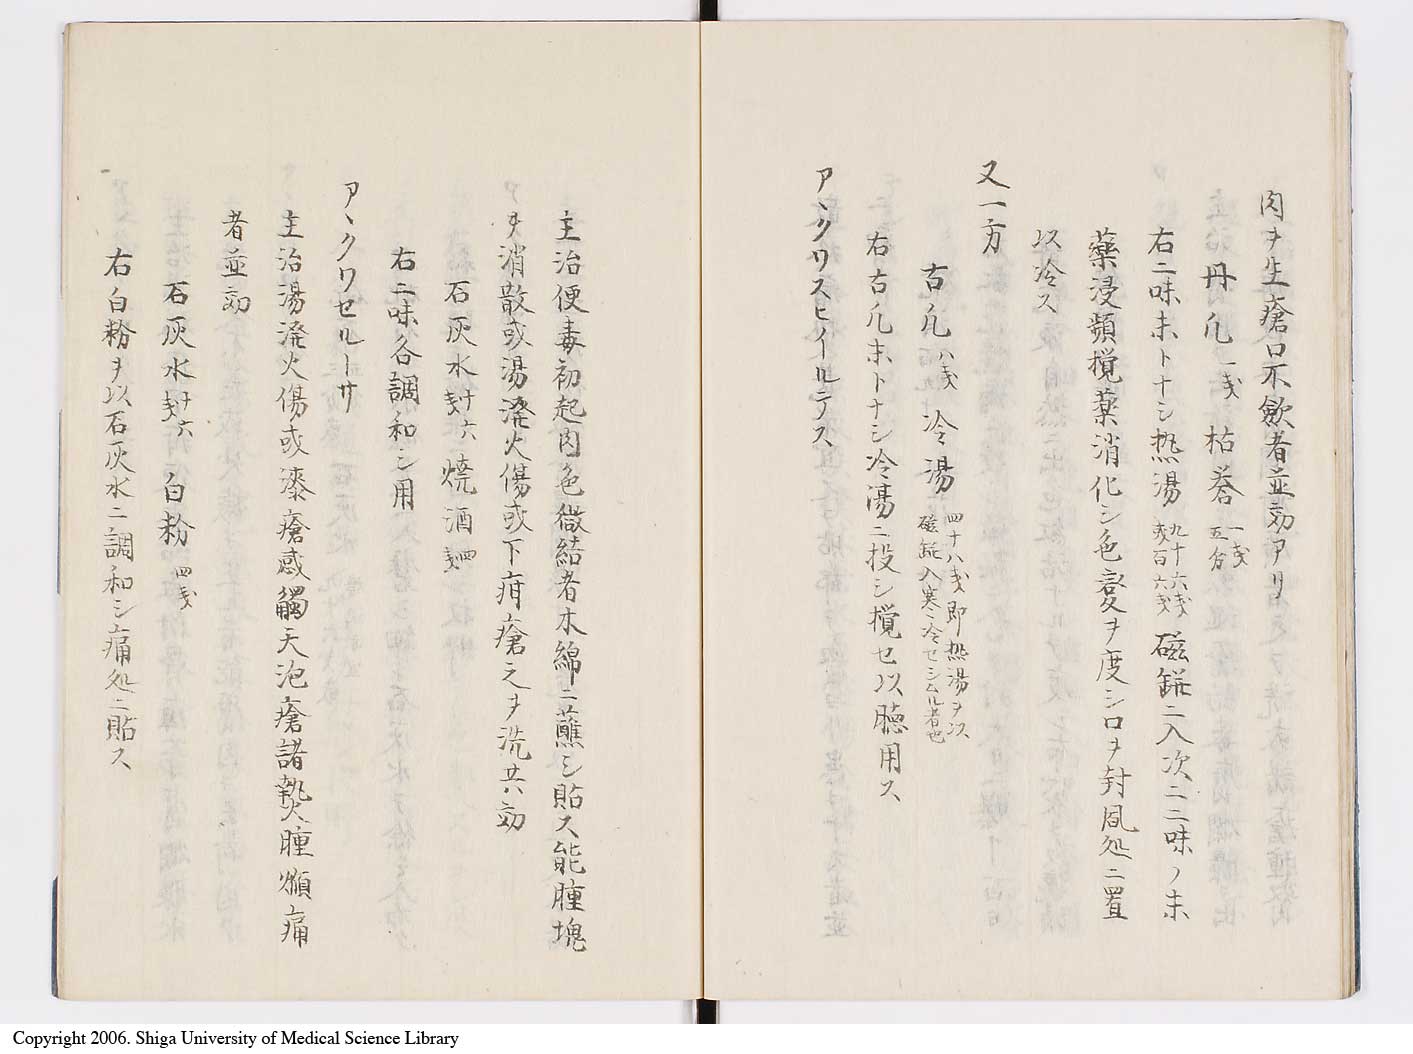 肉ヲ生瘡口不歛者並効アリ
丹凢 一戔 枯蒼 一戔五分
右二味末トナシ热湯 九十六戔 戔百六戔 磁鎚ニ入次ニ二味ノ末
藥浸頻攪薬消化シ色変ヲ度シロヲ封風処ニ置
以冷ス
又一方
古凢 八戔 冷湯 四十八戔即热湯ヲ以磁鎚入寒ミ冷セシムル者也
右古凢末トナシ冷湯ニ投シ攪セ以聴用ス
アヽクワスヒイルテス
主治便毒初起肉色微結者木綿ニ蘸シ貼ス能腫塊
ヲ消散或湯溌火傷或下疳瘡之ヲ洗共ハ効
石灰水 十六戔 焼酒 四戔
右二味各調和シ用
アヽクワセルトサ
主治湯溌火傷或漆瘡感觸天泡瘡諸熱腫焮痛
者並効
石灰水 十六戔 白粉 四戔
右白粉ヲ以石灰水ニ調和シ痛処ニ貼ス
Copyright 2006. Shiga University of Medical Science Library